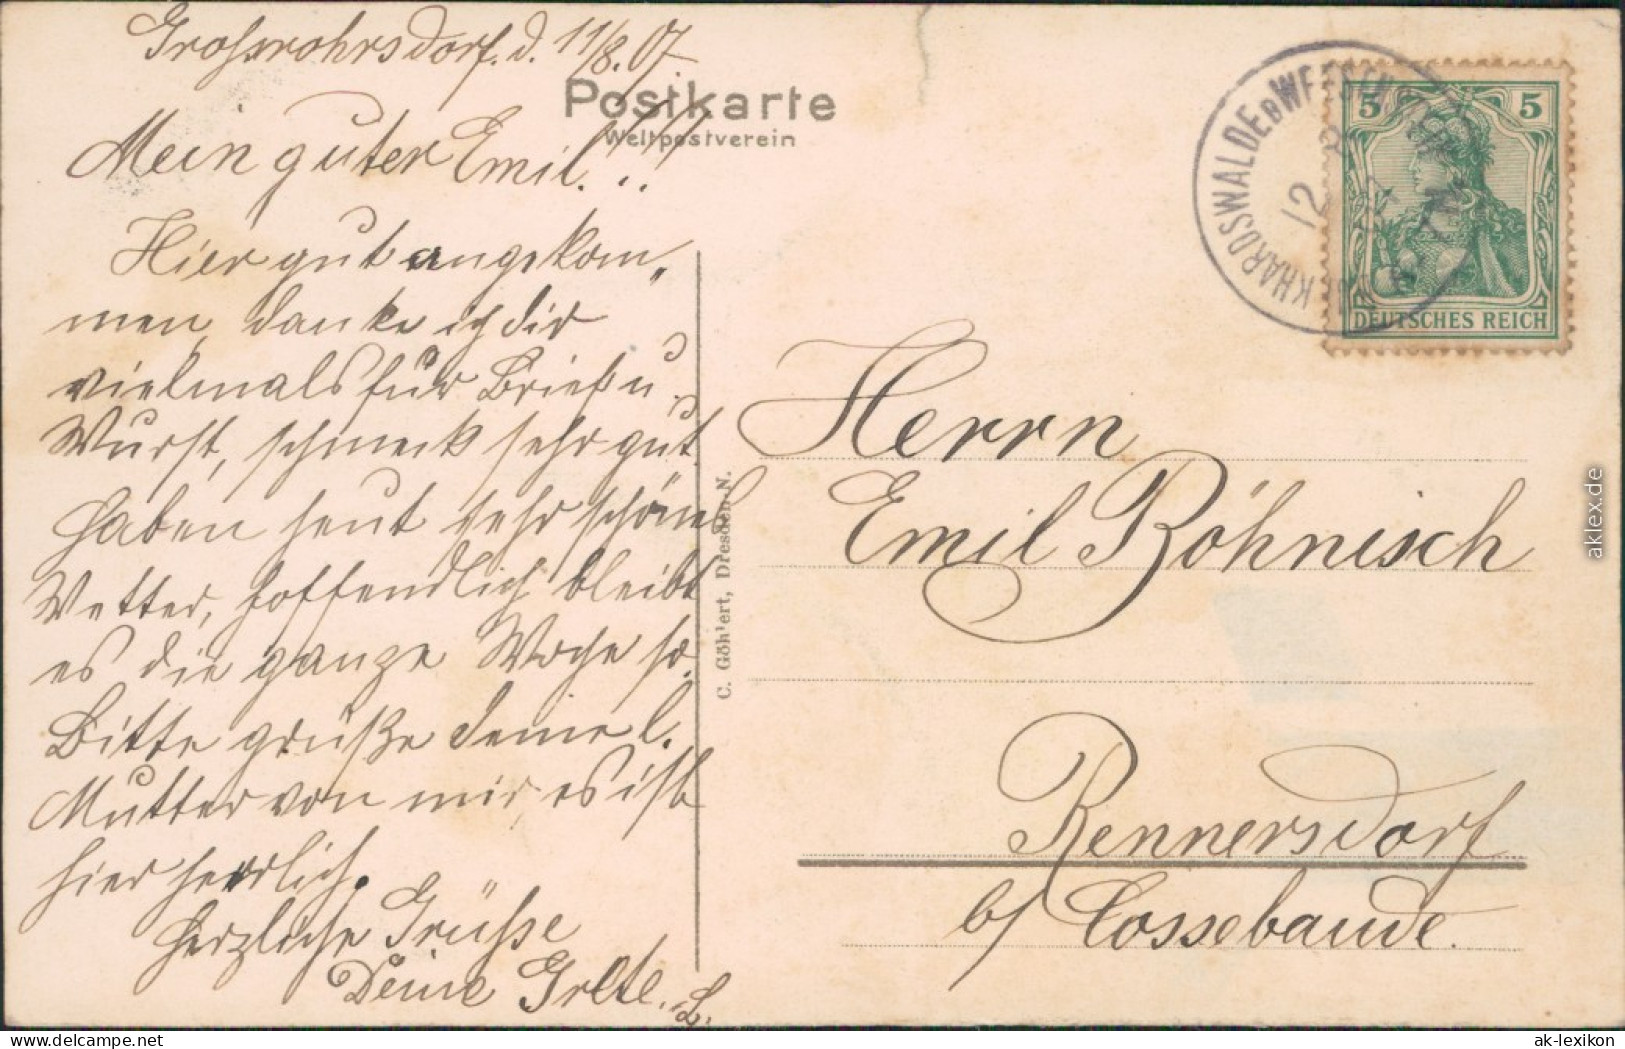 Grossrohrsdorf. d. 11/8.07.
Postkarte
Weltpostverein
Mein guter Emil.!!
Hier gut angekom„
men, danke ich dir
vielmals für Brief u.
Wurst, schmeck sehr gut.
Haben heut sehr schönes
Wetter, hoffendlich bleibt
es die ganze Woche so.
Bitte grüße deine l.
Mutter von mir, es ist
hier herrlich.
Herzliche Grüsse
Deine Grete. L.
C. Göhlert, Dresden-N.
5 5
DEUTSCHES REICH
12
Herrn
Emil Böhnisch
Rennersdorf
b/ Cossebaude.
aklex.de
delcampe.net
ak-lexikon